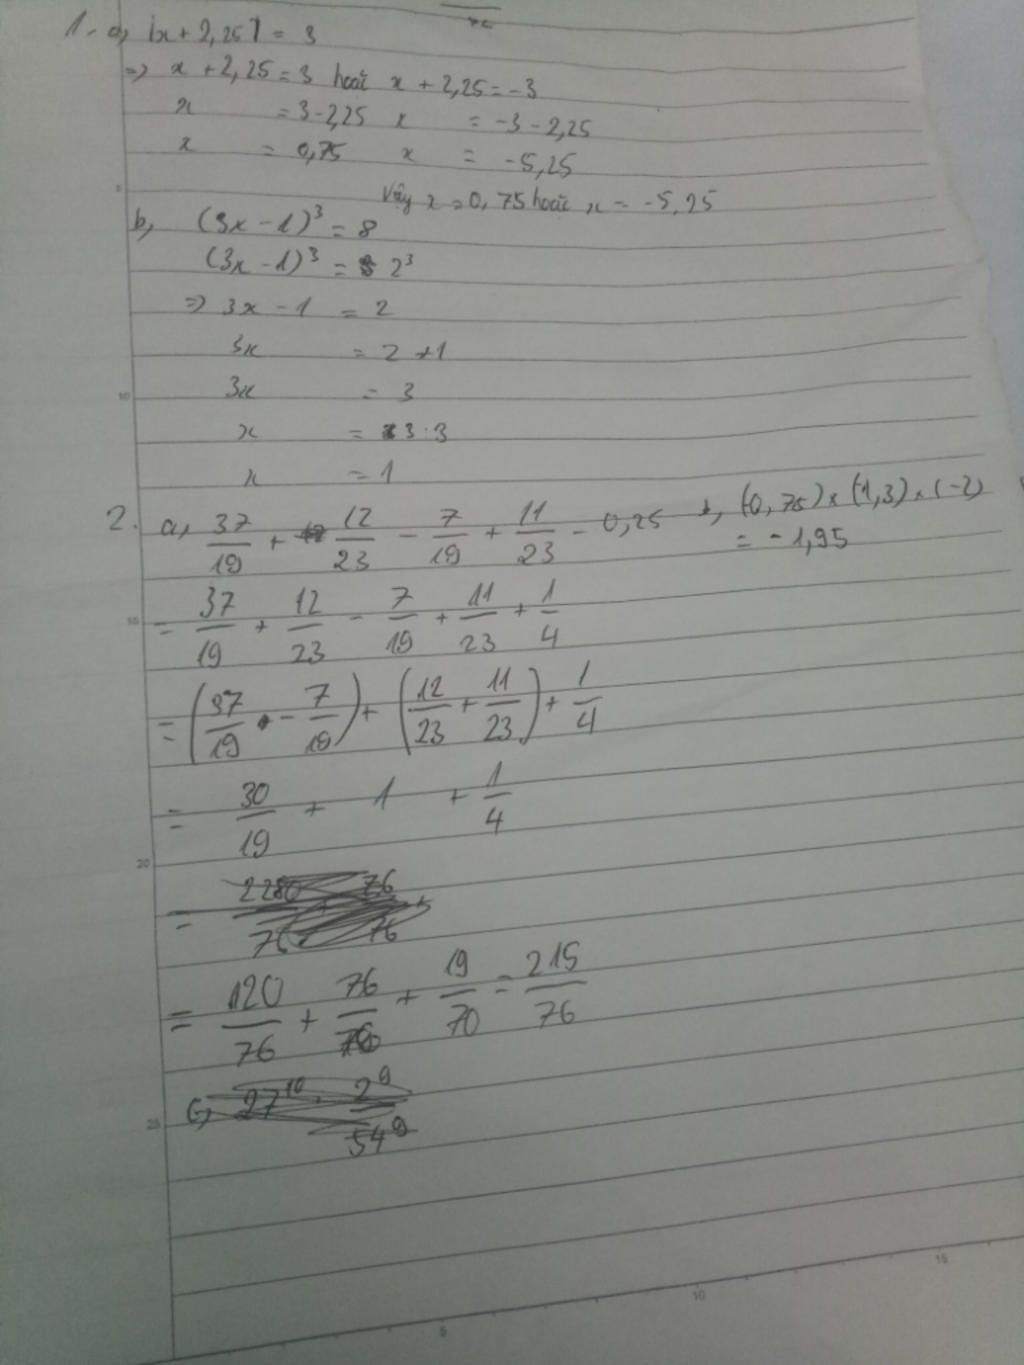 1. a, |x + 2,25| = 3
=> x + 2,25 = 3 hoặc x + 2,25 = -3
x = 3 - 2,25 x = -3 - 2,25
x = 0,75 x = -5,25
Vậy x = 0,75 hoặc x = -5,25
b, (3x - 1)³ = 8
(3x - 1)³ = 2³
=> 3x - 1 = 2
3x = 2 + 1
3x = 3
x = 3 : 3
x = 1
2. a, 37/19 + 12/23 - 7/19 + 11/23 - 0,25 b, (0,75) x (1,3) x (-2)
= -1,95
= 37/19 + 12/23 - 7/19 + 11/23 + 1/4
= (37/19 - 7/19) + (12/23 + 11/23) + 1/4
= 30/19 + 1 + 1/4
= 2280/76 + 76/76 +
= 120/76 + 76/76 + 19/70 = 215/76
c, 27¹⁰ . 2⁹/54⁹
5
10
15
20
25
5
10
15